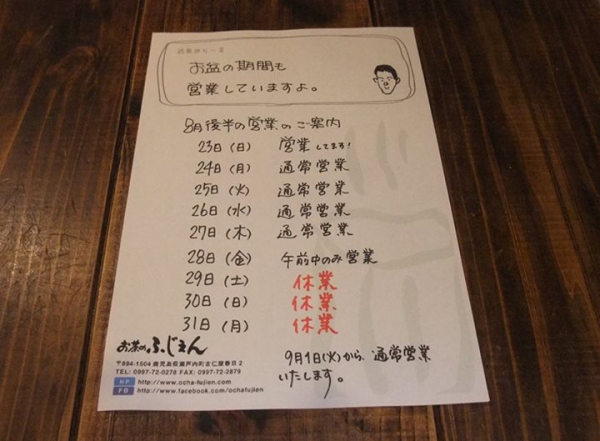 お盆の期間も
営業していますよ。
8月後半の営業のご案内
23日(日) 営業してます!
24日(月) 通常営業
25日(火) 通常営業
26日(水) 通常営業
27日(木) 通常営業
28日(金) 午前中のみ営業
29日(土) 休業
30日(日) 休業
31日(月) 休業
9月1日(火)から、通常営業
いたします。
お茶のふじえん
〒884-1504 鹿児島県瀬戸内町古仁屋春日2
TEL: 0997-72-0278 FAX: 0997-72-2879
HP http://www.ocha-fujien.com
FB http://www.facebook.com/ochafujien